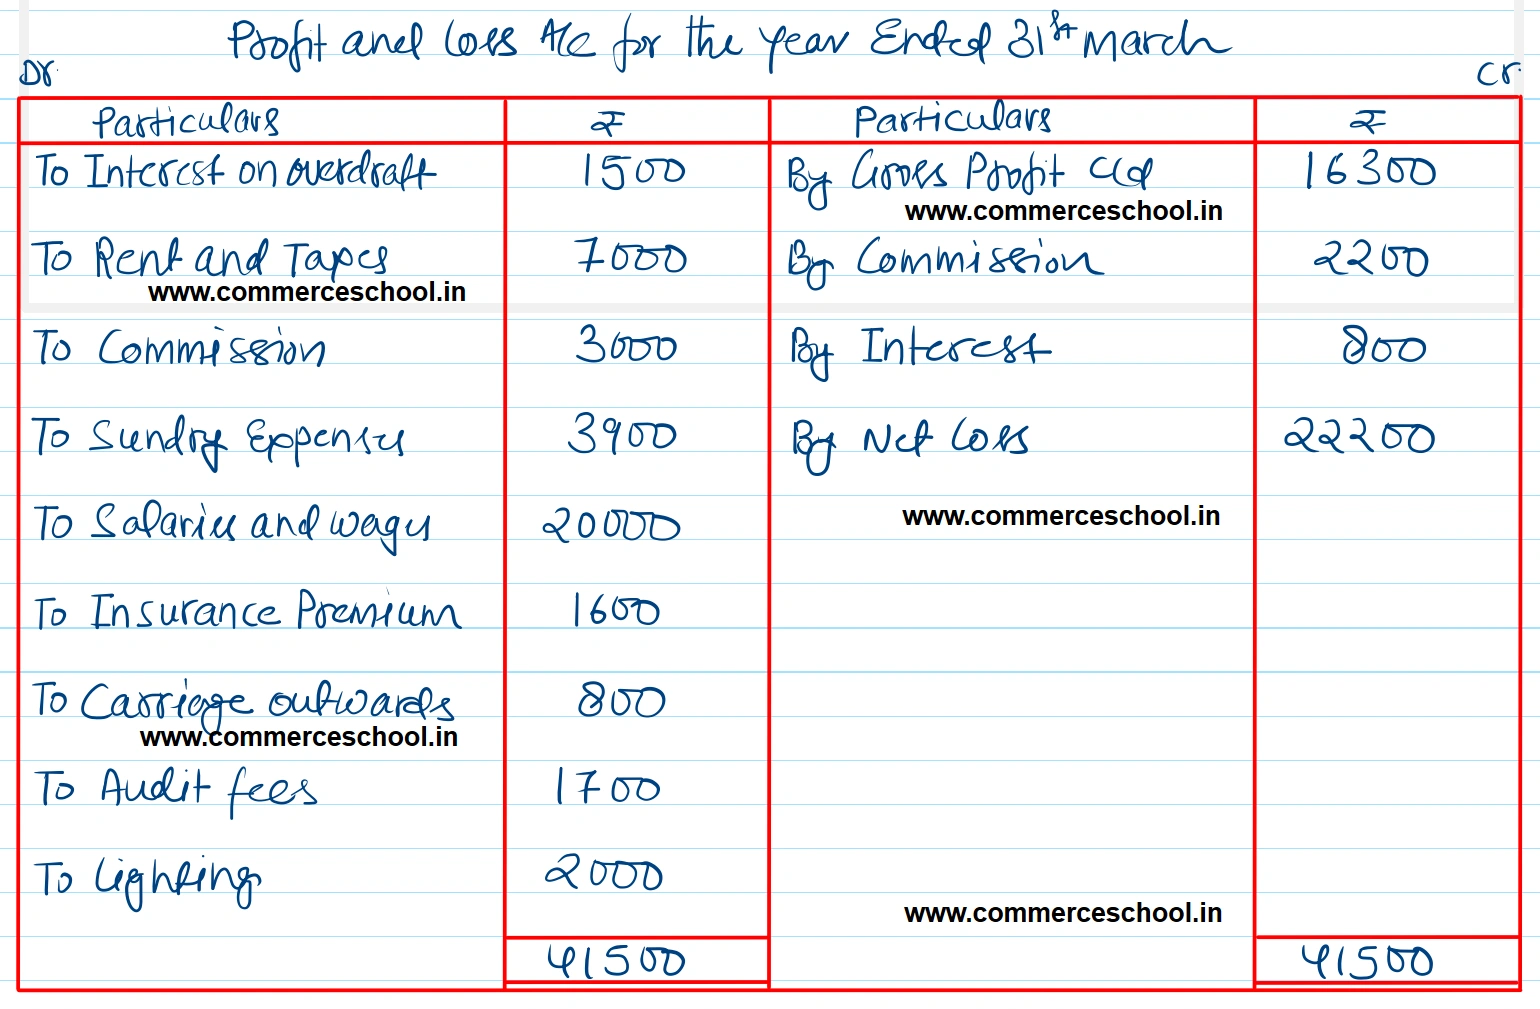 Profit and Loss A/c for the year Ended 31st March
Dr. Cr.
Particulars ₹ Particulars ₹
To Interest on overdraft 1500 By Gross Profit c/d 16300
www.commerceschool.in
To Rent and Taxes 7000 By Commission 2200
www.commerceschool.in
To Commission 3000 By Interest 800
To Sundry Expenses 3900 By Net Loss 22200
To Salaries and wages 20000
www.commerceschool.in
To Insurance Premium 1600
To Carriage outwards 800
www.commerceschool.in
To Audit fees 1700
To Lighting 2000
www.commerceschool.in
41500 41500